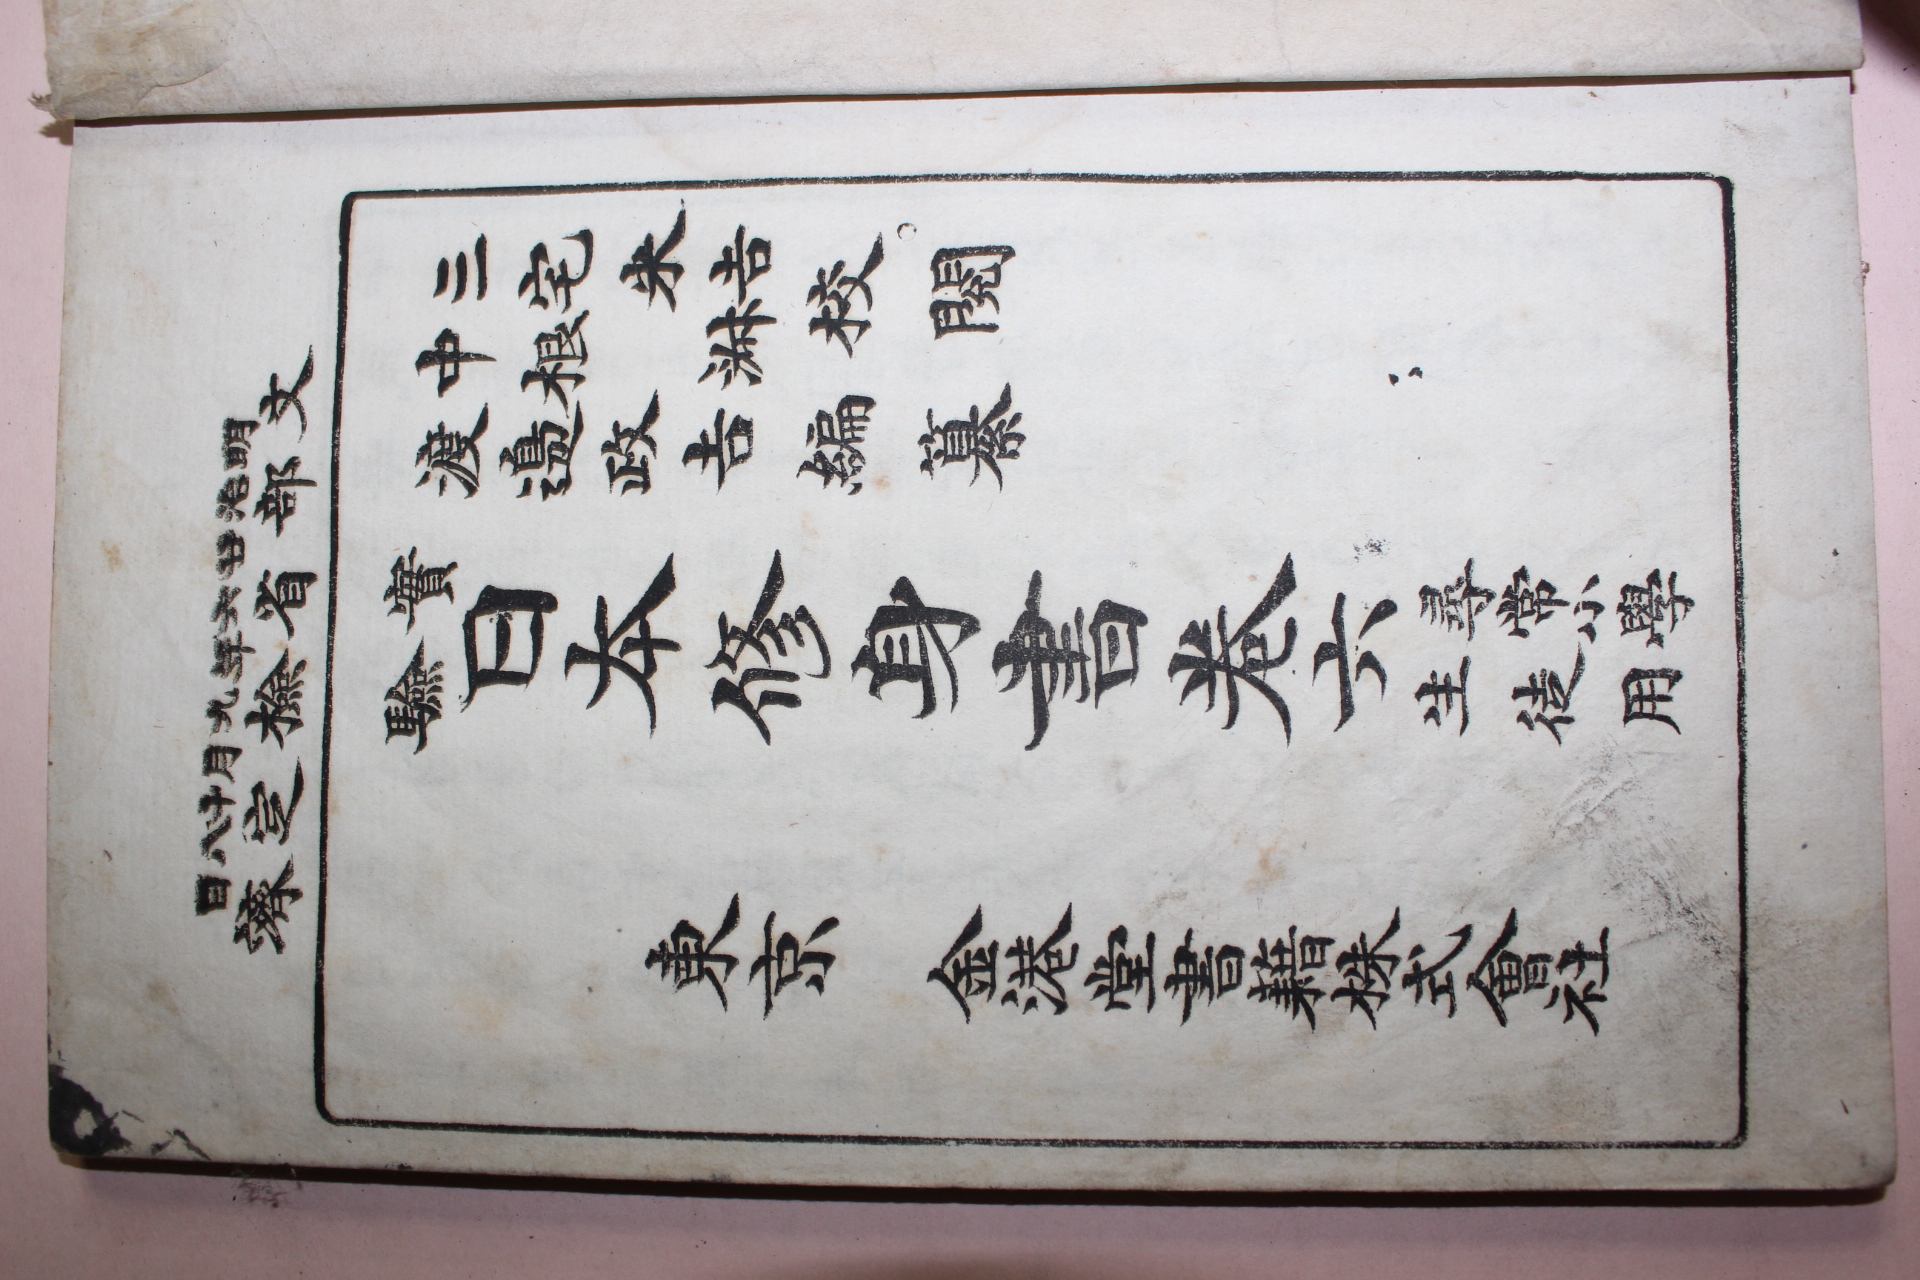 明治廿六年九月十八日
文部省檢定濟
三宅米吉
中根淑
校閲
渡邊政吉編纂
實驗
日本修身書卷六
尋常小學
生徒用
東京 金港堂書籍株式會社